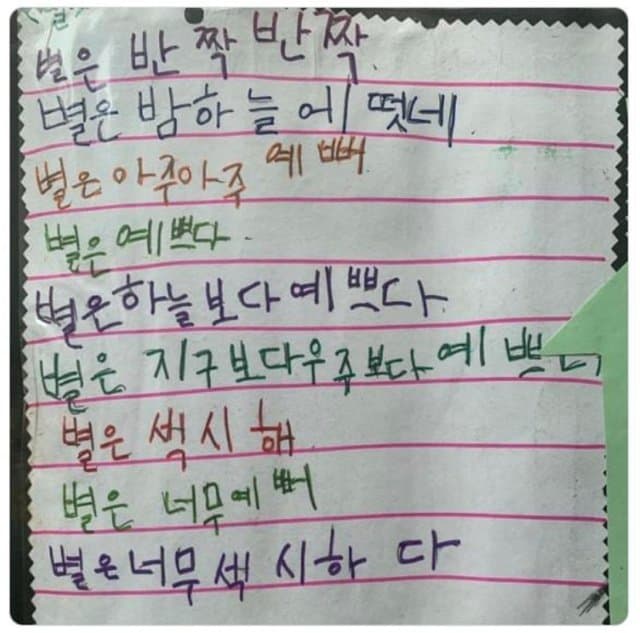 별은 반짝반짝
별은 밤하늘에 떳네
별은 아주아주 예뻐
별은 예쁘다
별은 하늘보다 예쁘다
별은 지구보다 우주보다 예쁘다
별은 섹시해
별은 너무 예뻐
별은 너무 섹시하다